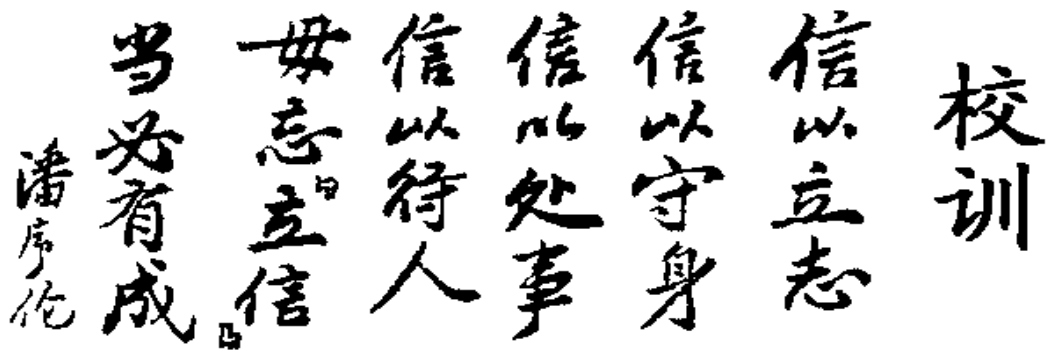 校训
信以立志
信以守身
信以处事
信以待人
毋忘立信
当必有成
潘序伦